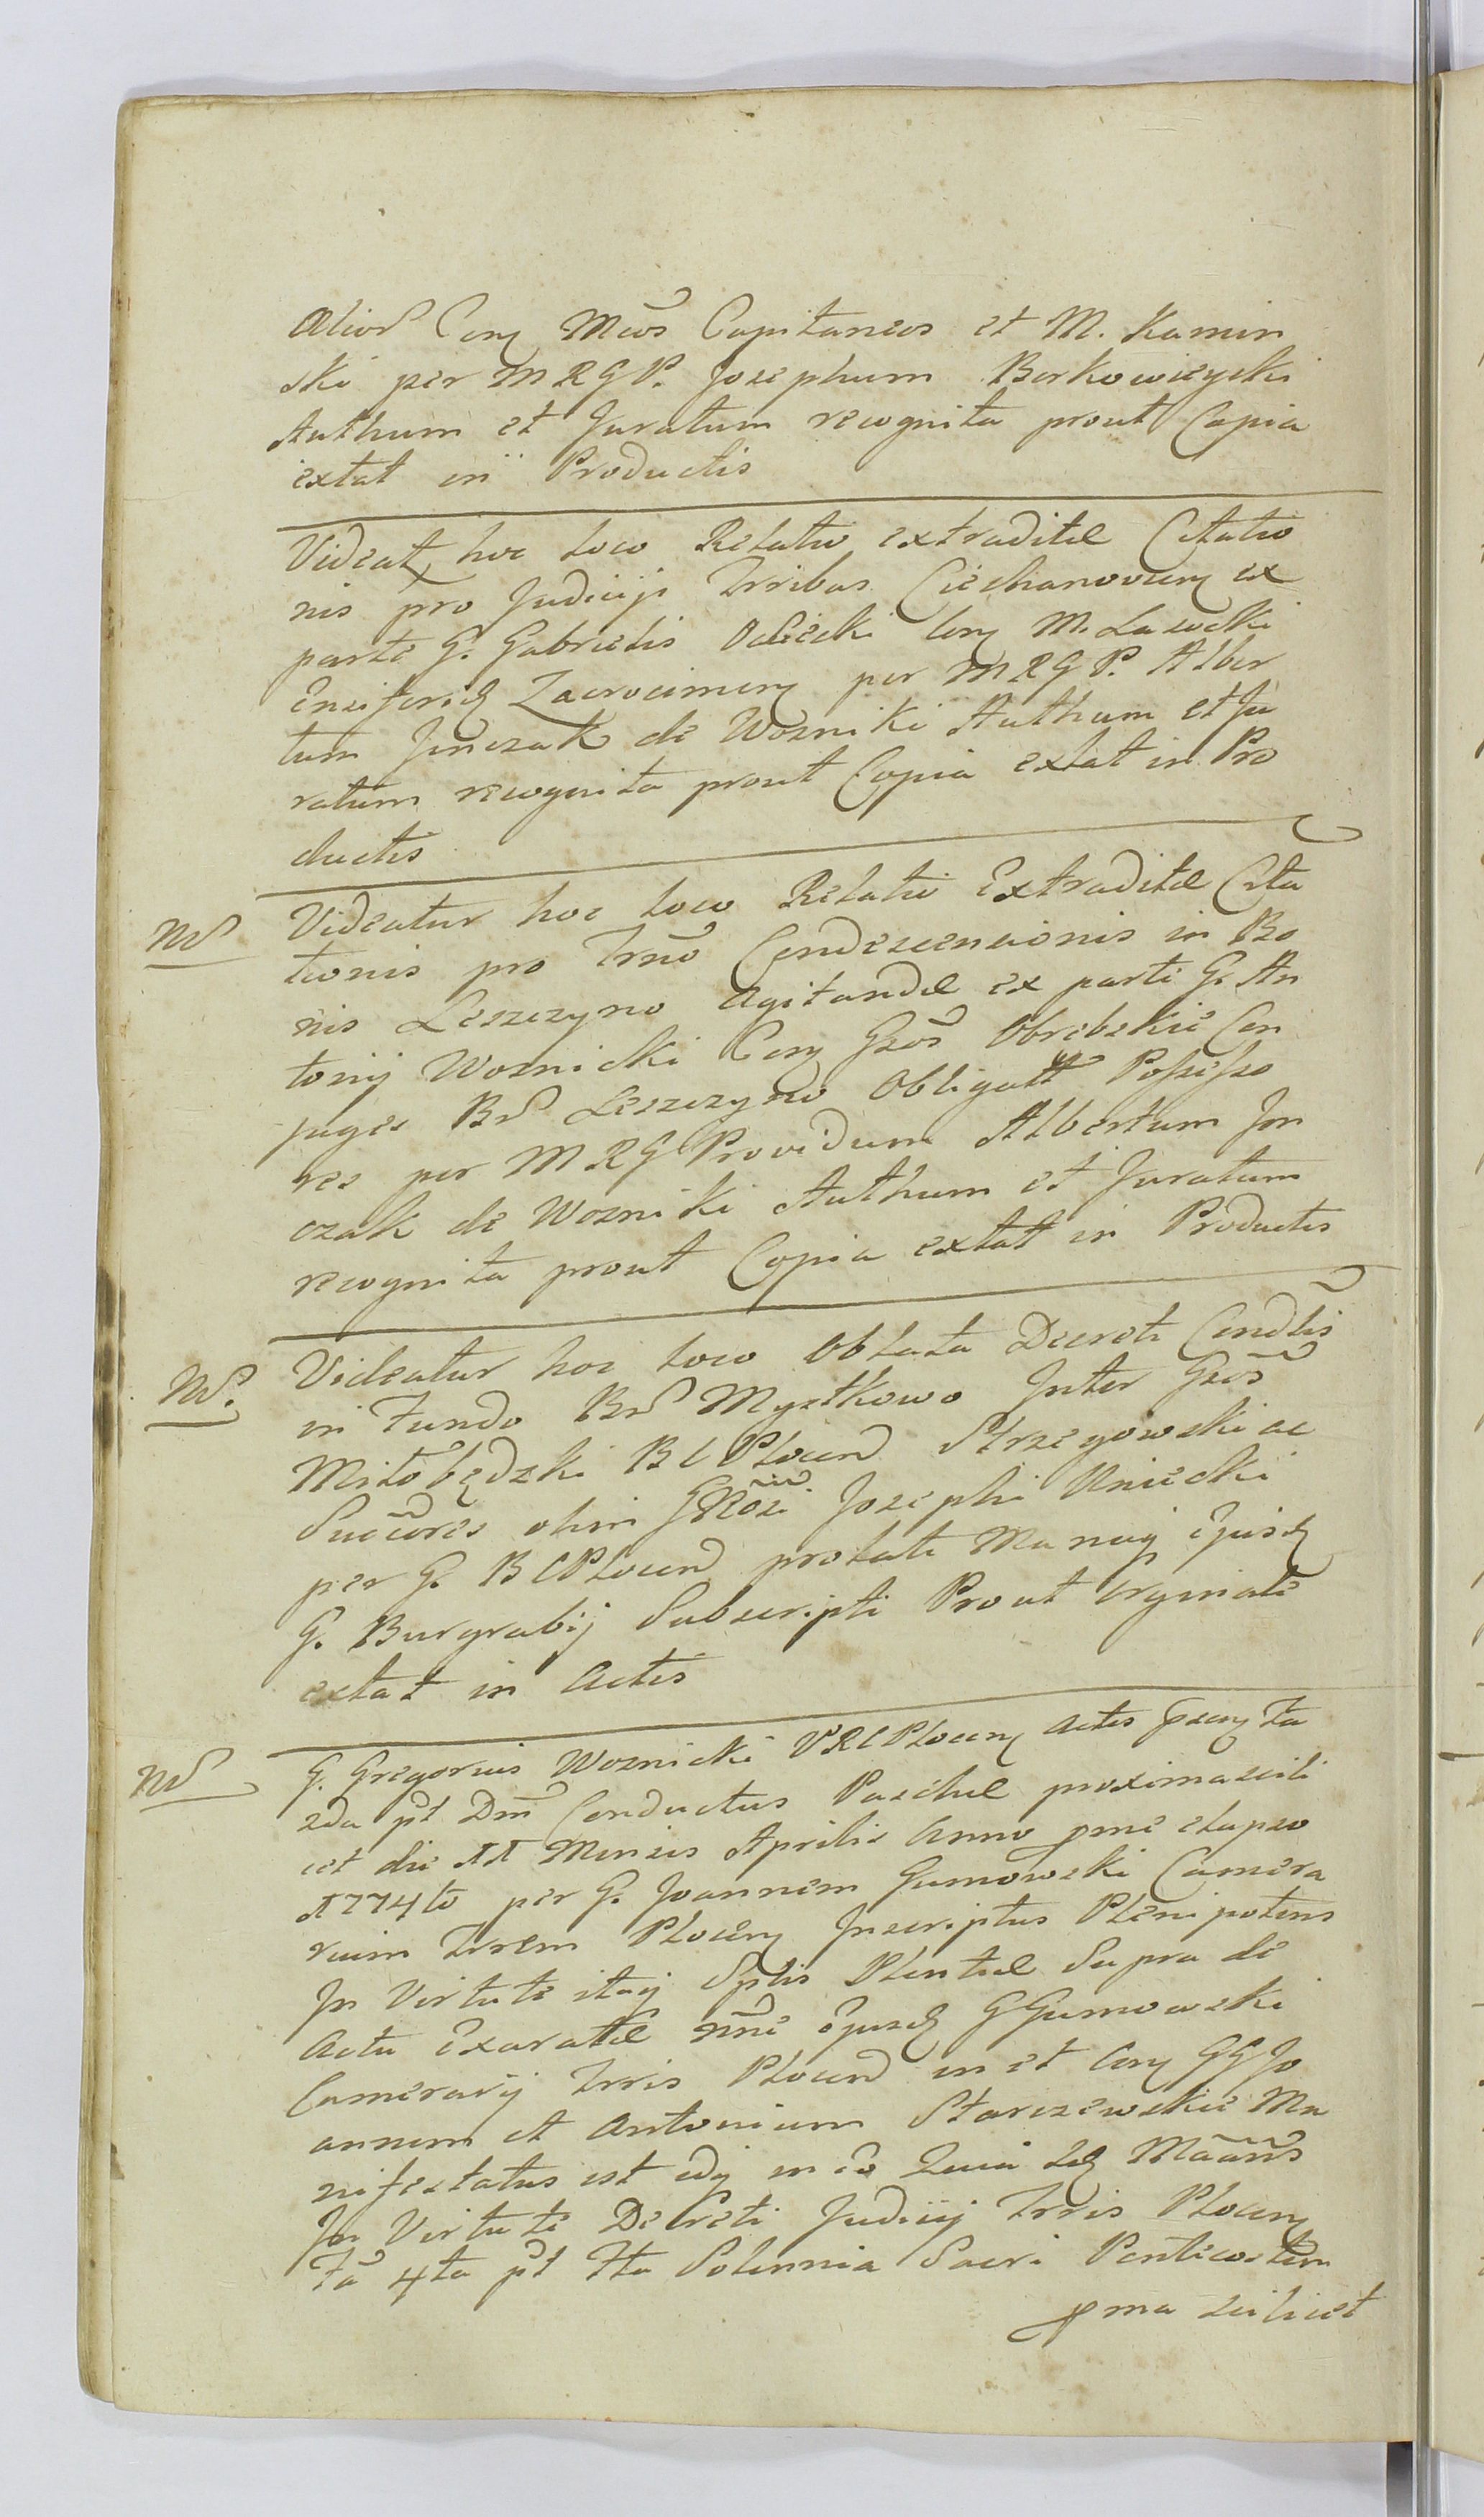 Capitaneos et M. Kamin
ski per MRGP. Josephum Borkowicyski
Authum et Juratum recognita prout Copia
extat in Productis
Videat hoc loco Relatio extraditæ Citatio
nis pro Judicijs Trribus Ciechanovien ex
parte G. Gabrielis con M. Lasocki
Ensiferid Zacrocimen per MRGP. Alber
tum Jonczak de Wozniki Authum et Ju
ratum recognita prout Copia extat in Pro
ductis
Nd Videatur hoc loco Relatio Extraditæ Cita
tionis pro Trmo Condescensionis in Bo
nis Leszczyno agitandæ ex parte G. An
tonij Woznicki Con Gsos Obrebskie Con
juges Brd Leszczyno Obligatt Possesso
res per MRG Providum Albertum Jon
czak de Wozniki Authum et Juratum
recognita prout Copia extat in Productis
Nd. Videatur hoc loco Oblata Decreti Condlis
in Fundo Brd Mystkowo Inter Gsos
Miłobędzki BCPlocen Strzegowski ac
Succores olim GRosi Josephi Uniecki
per G. BCPlocen prolati Manuq ejusd
G. Burgrabij Subscripti Prout Orginale
extat in Actis
Nd G. Gregorius Woznicki VRCPlocen Actis psen Fa
2da pt Dm Conductus Paschæ proxima scili
cet die 11 Mensis Aprilis Anno pnæ elapso
1774to per G. Joannem Gumowski Camera
rium Trrem Plocen Inscriptus Plenipotens
In Virtute itaq Splis Plentiæ Supra de
Actu Exaratæ nne ejusd GGumowski
Camerarij Trris Plocen in et con GG Jo
annem et Antonium Starczewskie Ma
nifestatus est idq in eo Quia Idd Maans
In Virtute Decreti Judicij Trris Plocen
Fa 4ta pt Fta Solennia Sacri Pentecosten
pma scilicet